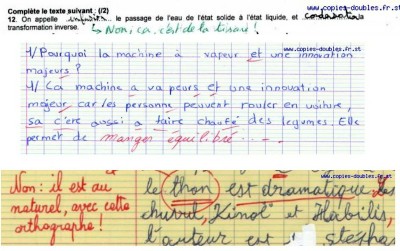 www.copies-doubles.fr.st
Complète le texte suivant : (/2)
12. On appelle le passage de l'eau de l'état solide à l'état liquide, et
transformation inverse.
↳ Non, ça, c'est de la tisane !
www.copies-doubles.fr.st
1/ Pourquoi la machine à vapeur et une innovation
majeurs ?
1/ La machine a va peurs et une innovation
majeur car les personne peuvent rouler en voiture,
sa c'ere aussi a faire chaufé des legumes. Elle
permet de manger équilibré - - -
www.copies-doubles.fr.st
Non : il est au
naturel, avec cette
orthographe !
le thon est dramatique
churul, Kinol et Habilis,
l'auteur est